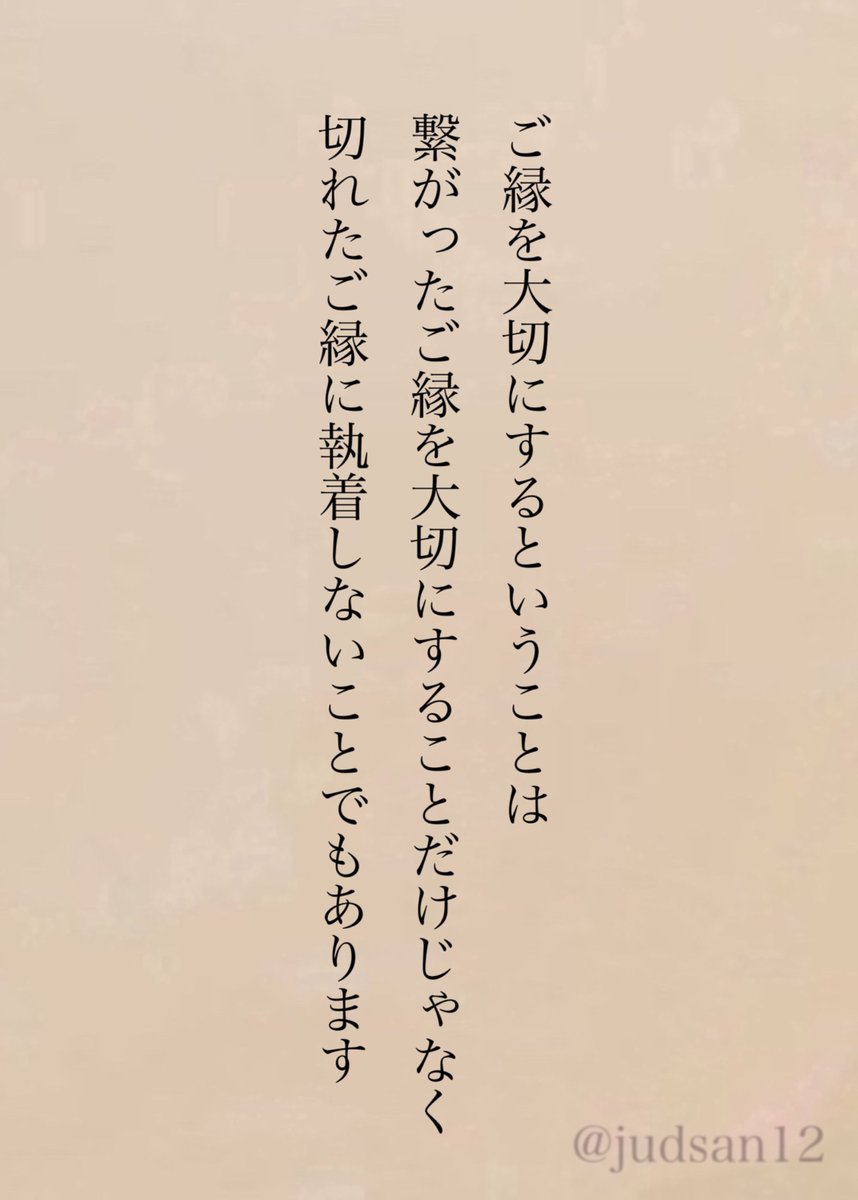 ご縁を大切にするということは
繋がったご縁を大切にすることだけじゃなく
切れたご縁に執着しないことでもあります
@judsan12